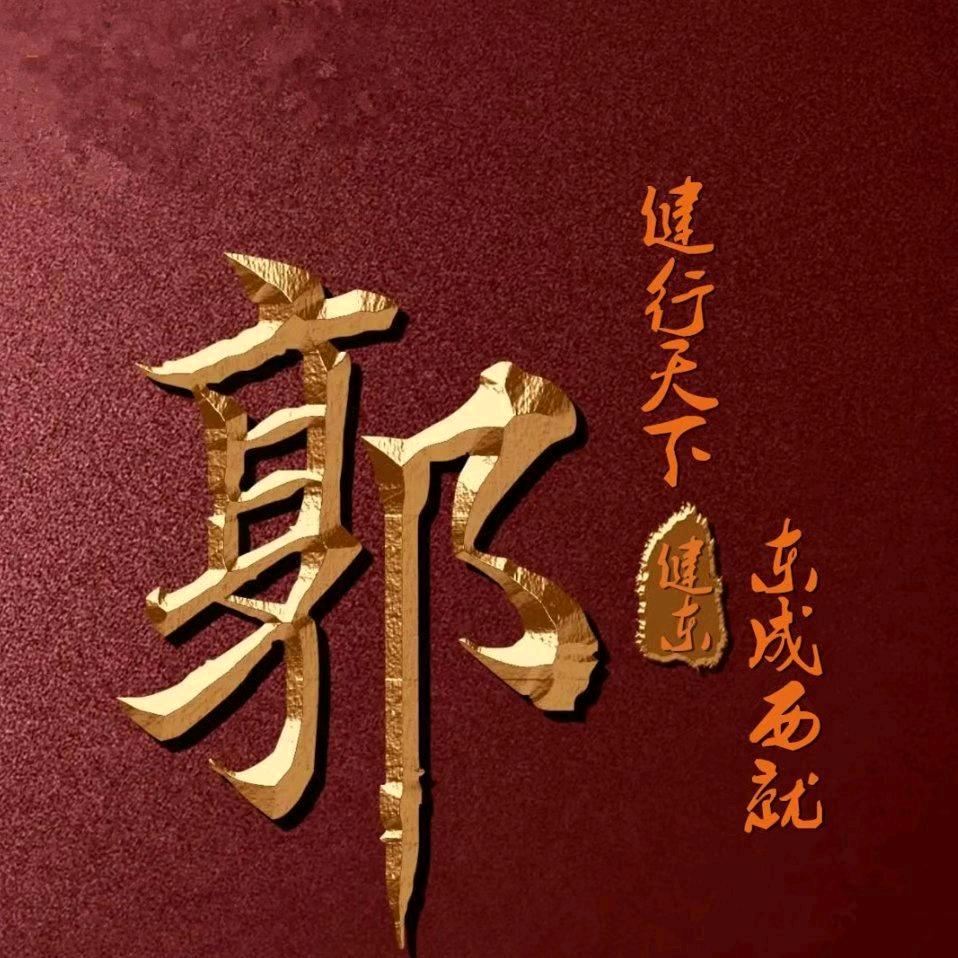 郭
健行天下
健东
东成西就